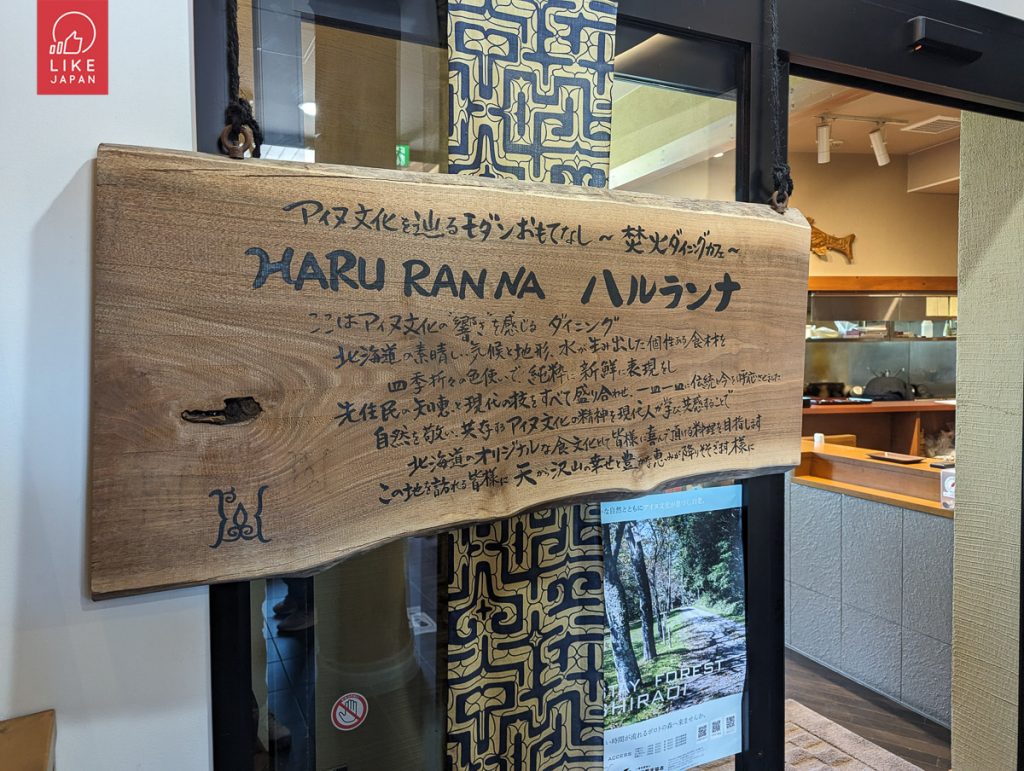 LIKE
JAPAN
アイヌ文化を辿るモダンおもてなし ~ 焚火ダイニングカフェ~
HARU RAN NA ハルランナ
ここはアイヌ文化の"響き"を感じる ダイニング
北海道の素晴しい気候と地形、水が生み出した個性ある食材を
四季折々の色使いで、純粋に新鮮に表現をし
先住民の知恵と現代の技をすべて盛り合わせ、一皿一皿に伝統と今を呼応させました
自然を敬い、共存するアイヌ文化の精神を現代人が学び、共感することで
北海道のオリジナルな食文化として皆様に喜んで頂ける料理を目指します
この地を訪れる皆様に 天から沢山の幸せと豊かな恵みが降りそそぎます様に
な自然とともにアイヌ文化が息づく
FOREST
HIRAOI
い時間が流れるポロトの森へ来ませんか。
ACCESS